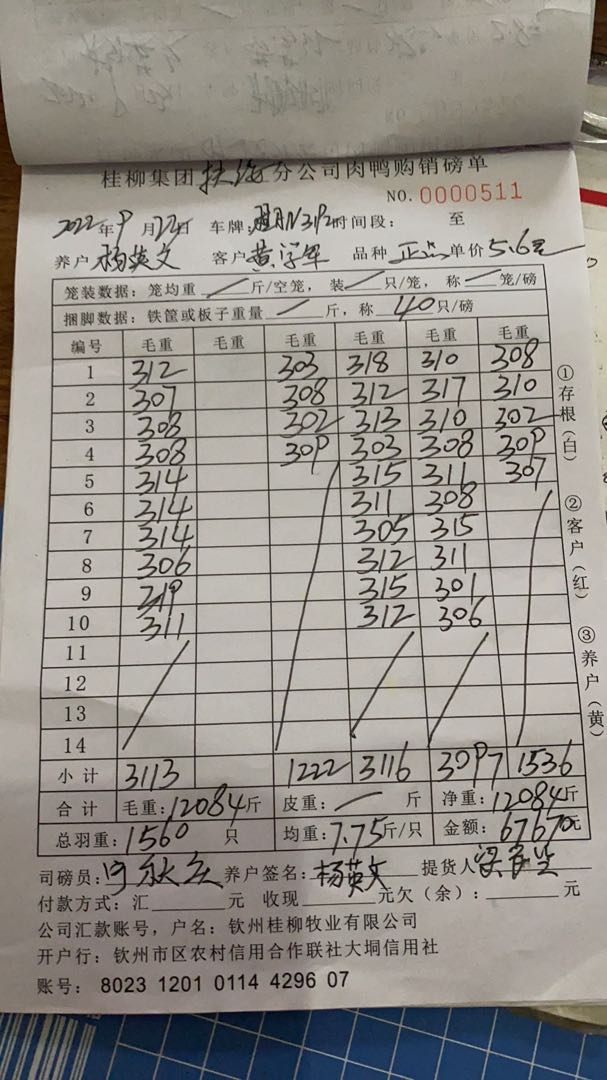 桂柳集团扶绥分公司肉鸭购销磅单
NO. 0000511
2022年9月22日 车牌: N312时间段: 至
养户 杨英文 客户 黄军 品种 正品 单价 5.6元
笼装数据: 笼均重 / 斤/空笼, 装 / 只/笼, 称 / 笼/磅
捆脚数据: 铁筐或板子重量 / 斤, 称 40 只/磅
编号 毛重 毛重 毛重 毛重 毛重 毛重
1 312 303 318 310 308
2 307 308 312 317 310
3 308 302 313 310 302
4 308 309 303 308 309
5 314 315 311 307
6 314 311 308
7 314 305 315
8 306 312 311
9 319 315 301
10 311 312 306
11
12
13
14
小计 3113 1222 3116 3097 1536
合计 毛重: 12084斤 皮重: / 斤 净重: 12084斤
总羽重: 1560 只 均重: 7.75斤/只 金额: 67670元
司磅员: 养户签名: 杨英文 提货人
付款方式: 汇 元 收现 元欠(余): 元
公司汇款账号, 户名: 钦州桂柳牧业有限公司
开户行: 钦州市区农村信用合作联社大垌信用社
账号: 8023 1201 0114 4296 07
①存根(白) ②客户(红) ③养户(黄)